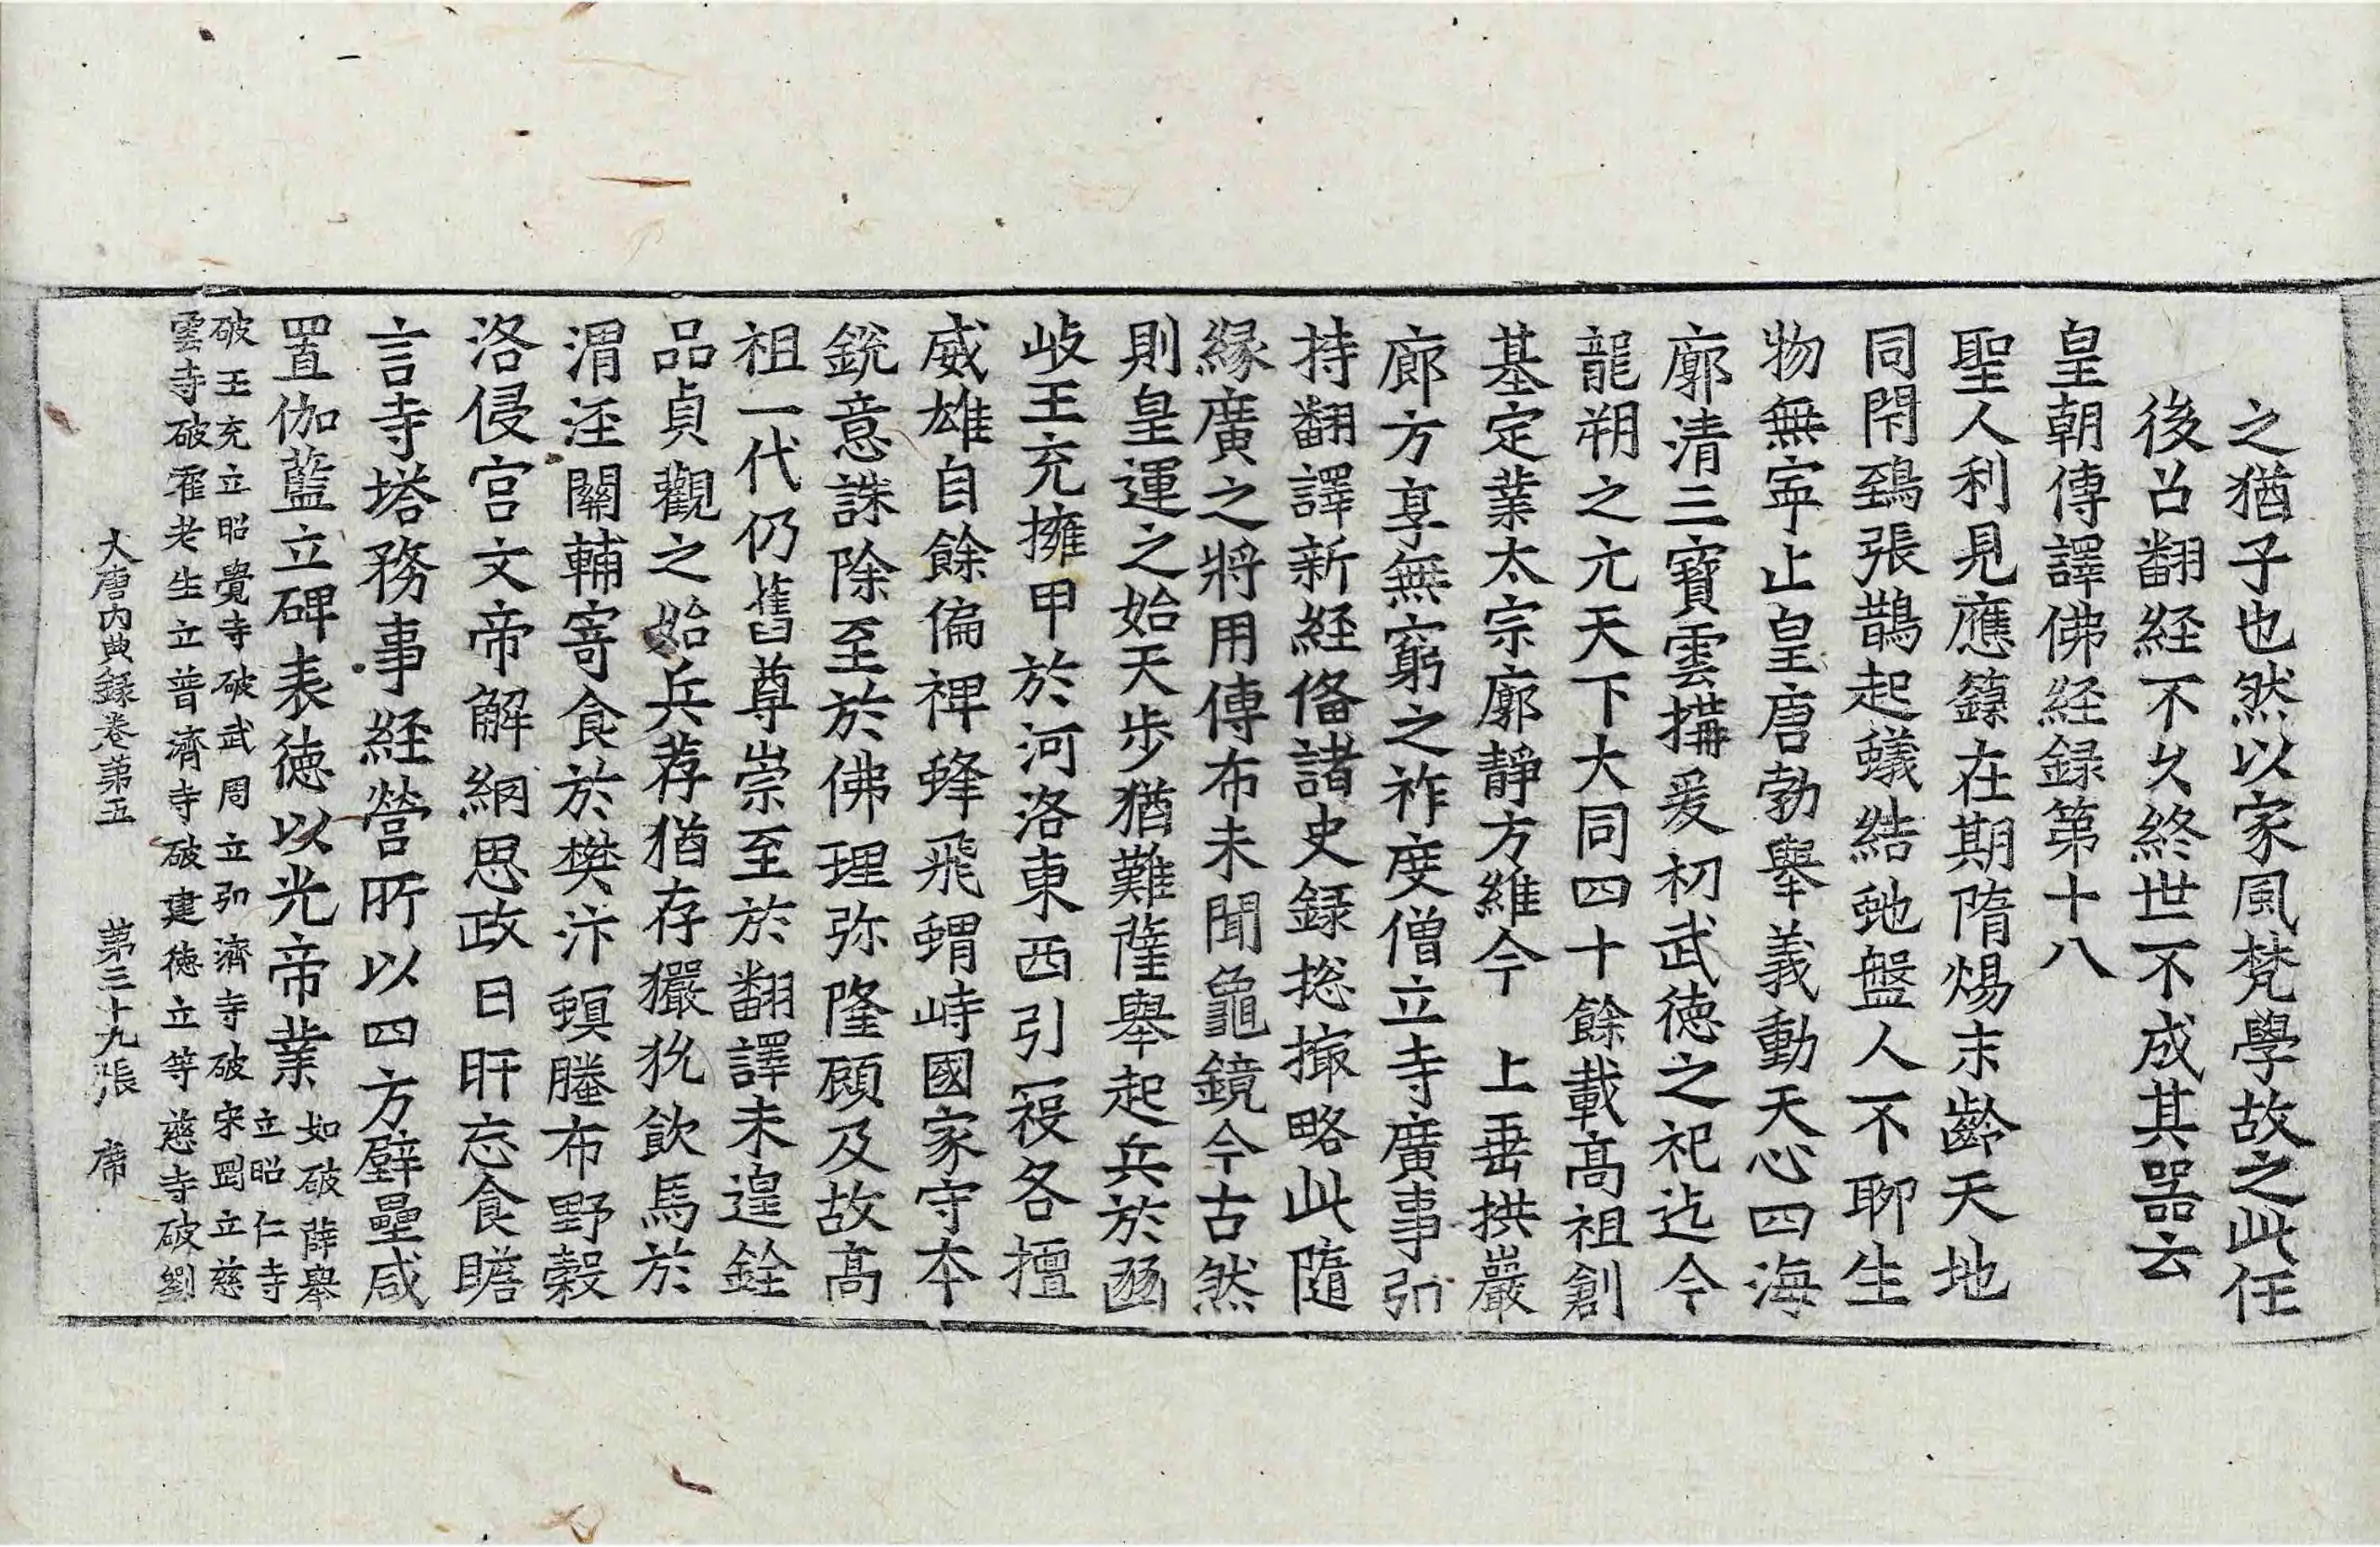 之猶子也然以家風梵學故之此任
後召翻経不久終世不成其器云
皇朝傳譯佛経録第十八
聖人利見應籙在期隋煬末齡天地
同閇鵄張鵲起蟻結虵盤人不聊生
物無寧止皇唐勃舉義動天心四海
廓清三寶雲搆爰初武德之祀迄今
龍朔之元天下大同四十餘載髙祖創
基定業太宗廓靜方維今 上垂拱巖
廊方享無窮之祚度僧立寺廣事弘
持翻譯新経俻諸史録捴撮略此隨
縁廣之將用傳布未聞龜鏡今古然
則皇運之始天步猶難薩舉起兵於豳
岐王充擁甲於河洛東西引祋各擅
威雄自餘偏裨蜂飛蝟峙國家守本
銳意誅除至於佛理弥隆顧及故髙
祖一代仍舊尊崇至於翻譯未遑銓
品貞觀之始兵荐猶存玁狁飲馬於
渭涇關輔寄食於樊汴螟螣布野穀
洛侵宮文帝解網思政日旰忘食瞻
言寺塔務事経營所以四方壁壘咸
置伽藍立碑表德以光帝業 如破薛舉
立昭仁寺
破王充立昭覺寺破武周立弘濟寺破宋罡立慈
雲寺破霍老生立普濟寺破建德立等慈寺破劉
大唐內典録卷第五 第三十九張 席